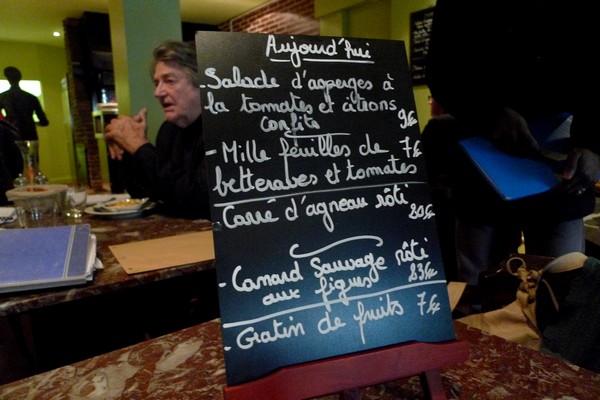 Aujourd'hui
-Salade d'asperges à
la tomates et citrons
confits 9€
-Mille feuilles de 7€
betteraves et tomates
Carré d'agneau rôti
20€
-Canard Sauvage rôti
aux figues 23€
-Gratin de fruits 7€